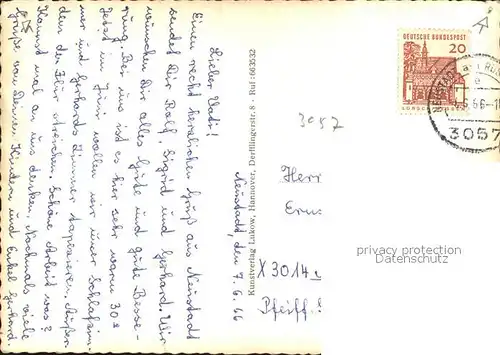 Lieber Vati!
Einen recht herzlichen Gruß aus Neustadt
sendet Dir Rolf, Sigrid und Gerhard. Wir
wünschen Dir alles Gute und gute Besse-
rung. Bei uns ist es hier sehr warm 30°
Jetzt im Juni wollen wir unser Schlafzim.
mer und Gerhards Zimmer tapezieren. Außer
dem den Flur streichen. Schöne Arbeit was?
Kannst mal an uns denken. Nochmals viele
Grüße von Deinen Kindern und Enkel Gerhard
Kunstverlag Lukow, Hannover, Derfflingerstr. 8 - Ruf: 663532
Neustadt, den 7.6.66
3057
DEUTSCHE BUNDESPOST
20
NEUSTADT
6.66-1
3057
Herr
X 3014
Pfeiff.
privacy protection
Datenschutz